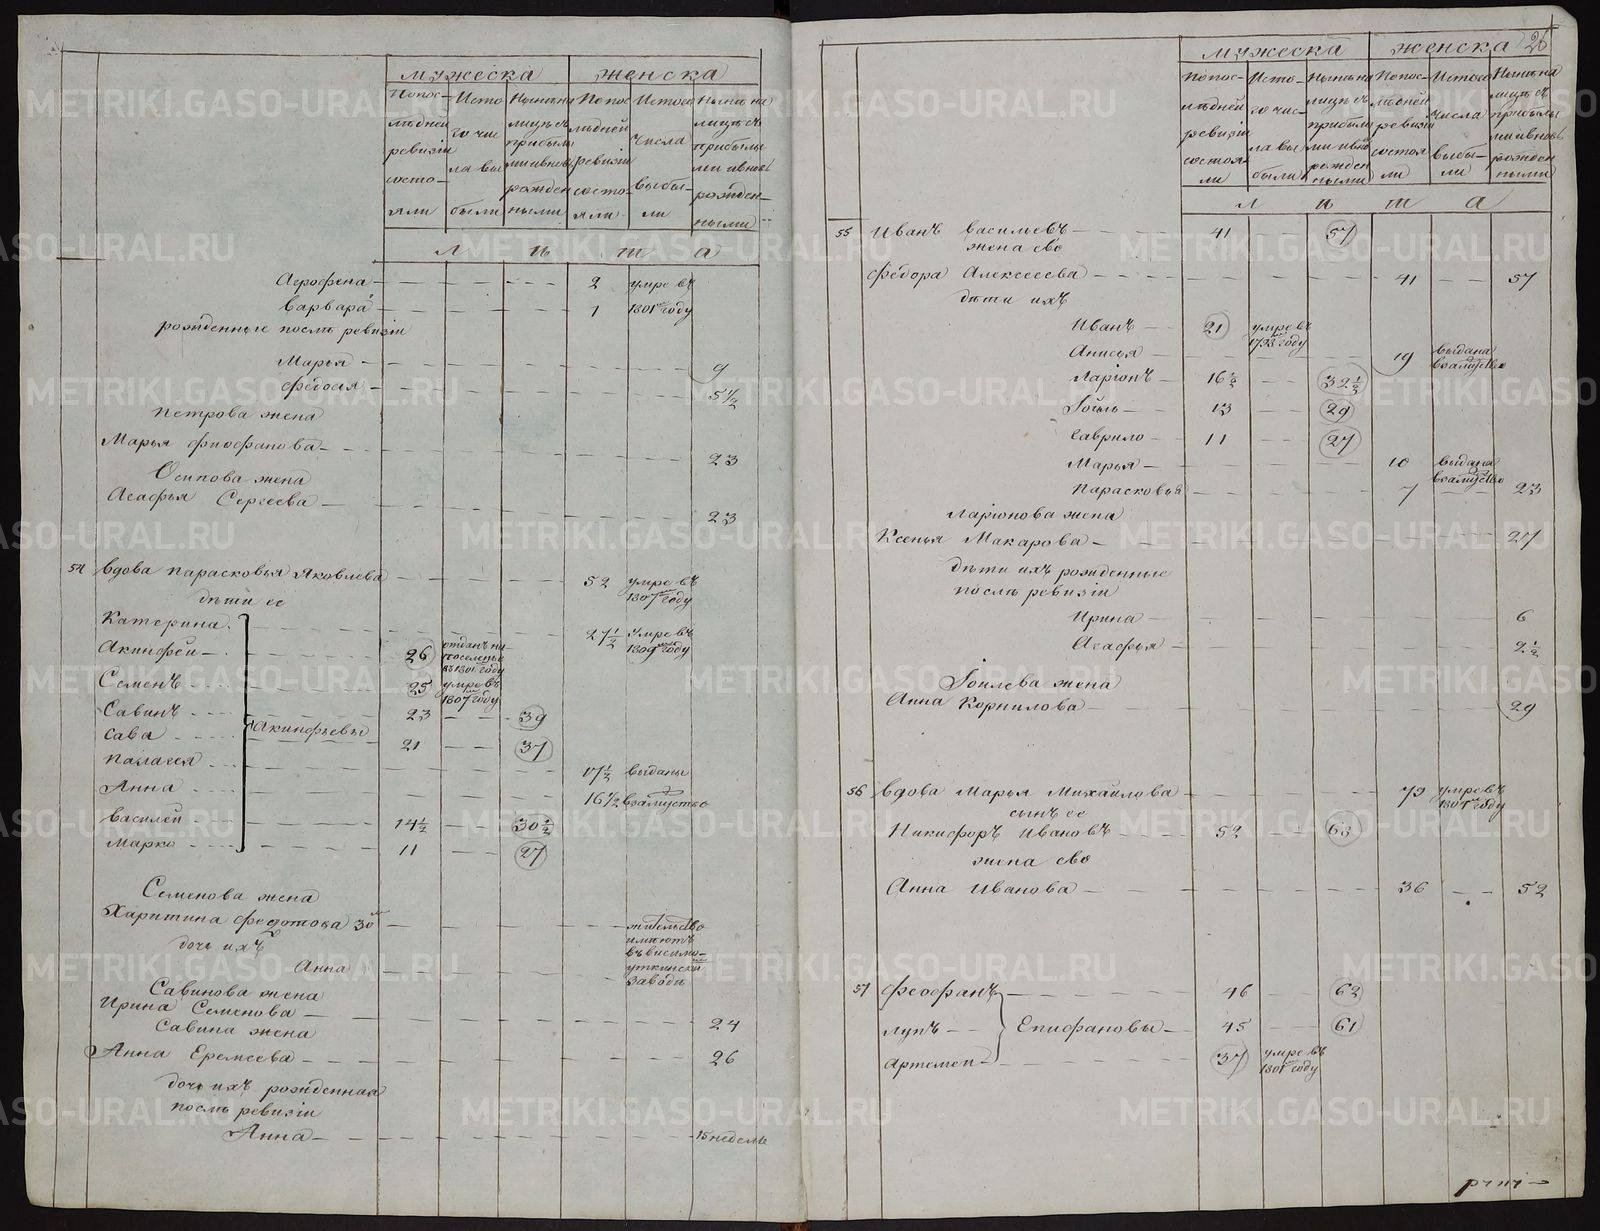 мужеска женска
Попослѣдней ревизіи состояли
Ис того числа выбыли
Нынѣ на лицѣ съ прибылыми и вновь рожденными
По последней ревизіи состояли
Ис того числа выбыли
Нынѣ на лицѣ съ прибылыми и вновь рожденными
лѣта
Агрофена 2 умре въ
Варвара 1 1801 году
рожденные послѣ ревизіи
Марья 9
Федосья 5 1/2
Петрова жена
Марья Фиофанова 23
Осипова жена
Агафья Сергеева 23
54 вдова Парасковья Яковлева 52 умре въ 1807 году
дѣти ее
Катерина 27 1/2 умре въ 1809 году
Акинфей 26 отданъ на поселенье въ 1801 году
Семенъ 25 умре въ 1807 году
Савинъ 23 39
Сава Акинфьевы 21 37
Палагея 17 1/2 выданы
Анна 16 1/2 взамуство
Василей 14 1/2 30 1/2
Марко 11 27
Семенова жена
Харитина Федотова 30 жительство
дочь ихъ имѣютъ
Анна въ висимо-уткинскомъ заводѣ
Савинова жена
Ирина Семенова 24
Савина жена
Анна Еремеева 26
дочь ихъ рожденная
послѣ ревизіи
Анна 15 недель
26
мужеска женска
Попослѣдней ревизіи состояли
Исто го числа выбыли
Нынѣ на лицѣ съ прибылыми и вновь рожденными
Попослѣдней ревизіи состояли
Истого числа выбыли
Нынѣ на лицѣ съ прибылыми и вновь рожденными
лѣта
55 Иванъ Васильевъ 41 57
жена ево
Федора Алексеева 41 57
дѣти ихъ
Иванъ 21 умре въ 1798 году
Анисья 19 выдана взамуство
Ларіонъ 16 1/2 32 1/2
Іоиль 13 29
Гаврило 11 27
Марья 10 выдана взамуство
Парасковья 7 23
Ларіонова жена
Ксенья Макарова 27
дѣти ихъ рожденные
послѣ ревизіи
Ирина 6
Агафья 2 1/2
Іоилева жена
Анна Корнилова 29
56 вдова Марья Михайлова 79 умре въ 1801 году
сынъ ее
Никифоръ Ивановъ 52 68
жена ево
Анна Иванова 36 52
57 Феофанъ 46 62
Лупъ Епифановы 45 61
Артемей 37 умре въ 1801 году
METRIKI.GASO-URAL.RU